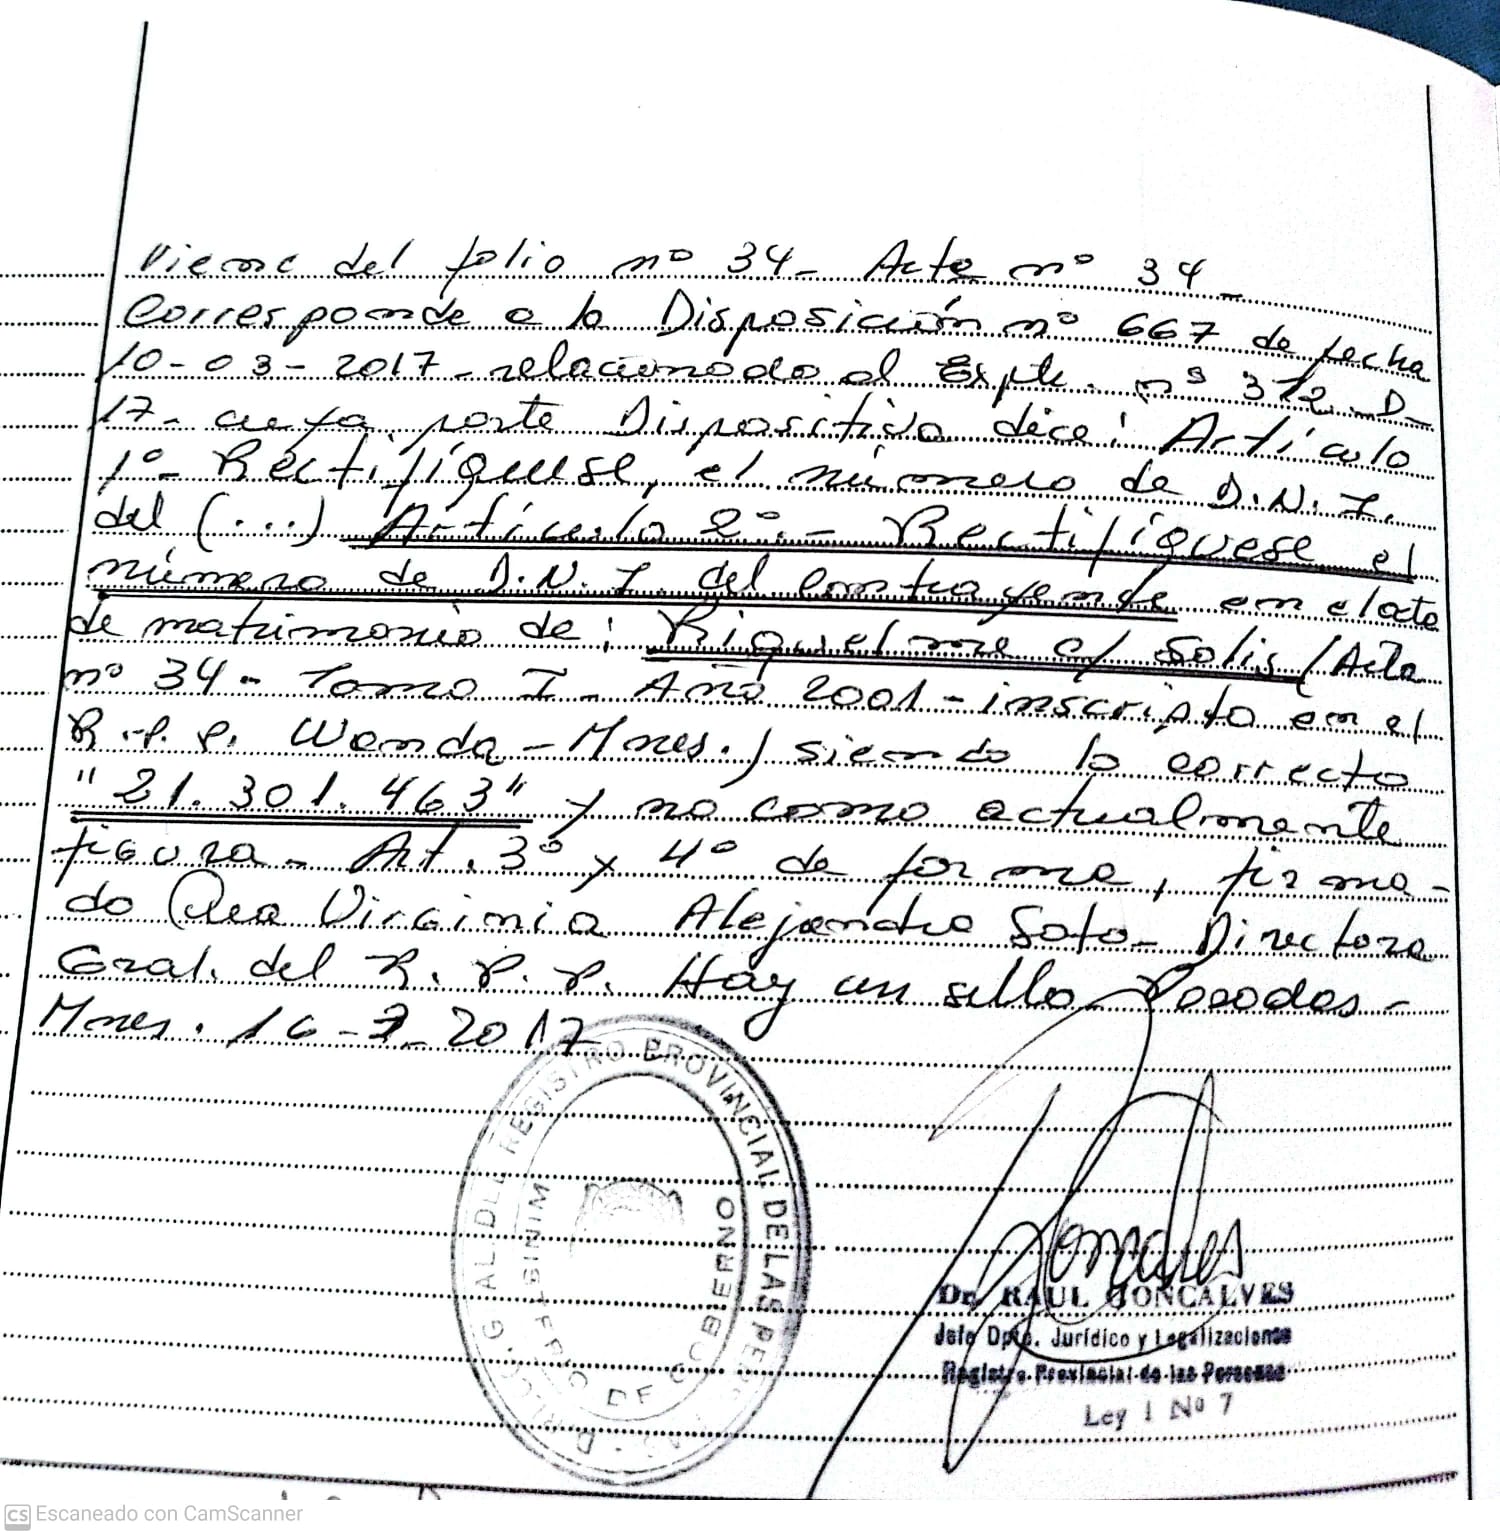 Viene del folio nº 34- Acta nº 34-
Corresponde a la Disposición nº 667 de fecha
10-03-2017- relacionado al Expte. nº 372-D-
17- cuya parte Dispositiva dice: Artículo
1º- Rectifíquese, el número de D.N.I.
del (...) Artículo 2º.- Rectifíquese el
número de D.N.I. del contrayente en el acta
de matrimonio de: Riquelme c/ Solis (Acta
nº 34- Tomo I- Año 2001- inscripto en el
R.P.P. Wanda- Mnes.) siendo lo correcto
"21.301.463" y no como actualmente
figura- Art. 3º y 4º de forma, firma-
do Virginia Alejandra Soto- Directora
Gral. del R.P.P. Hay un sello Posadas-
Mnes. 16-3-2017
REGISTRO PROVINCIAL DE LAS PERSONAS
MINISTERIO DE GOBIERNO
Dr. RAUL GONCALVES
Jefe Dpto. Jurídico y Legalizaciones
Registro Provincial de las Personas
Ley I Nº 7
CS Escaneado con CamScanner